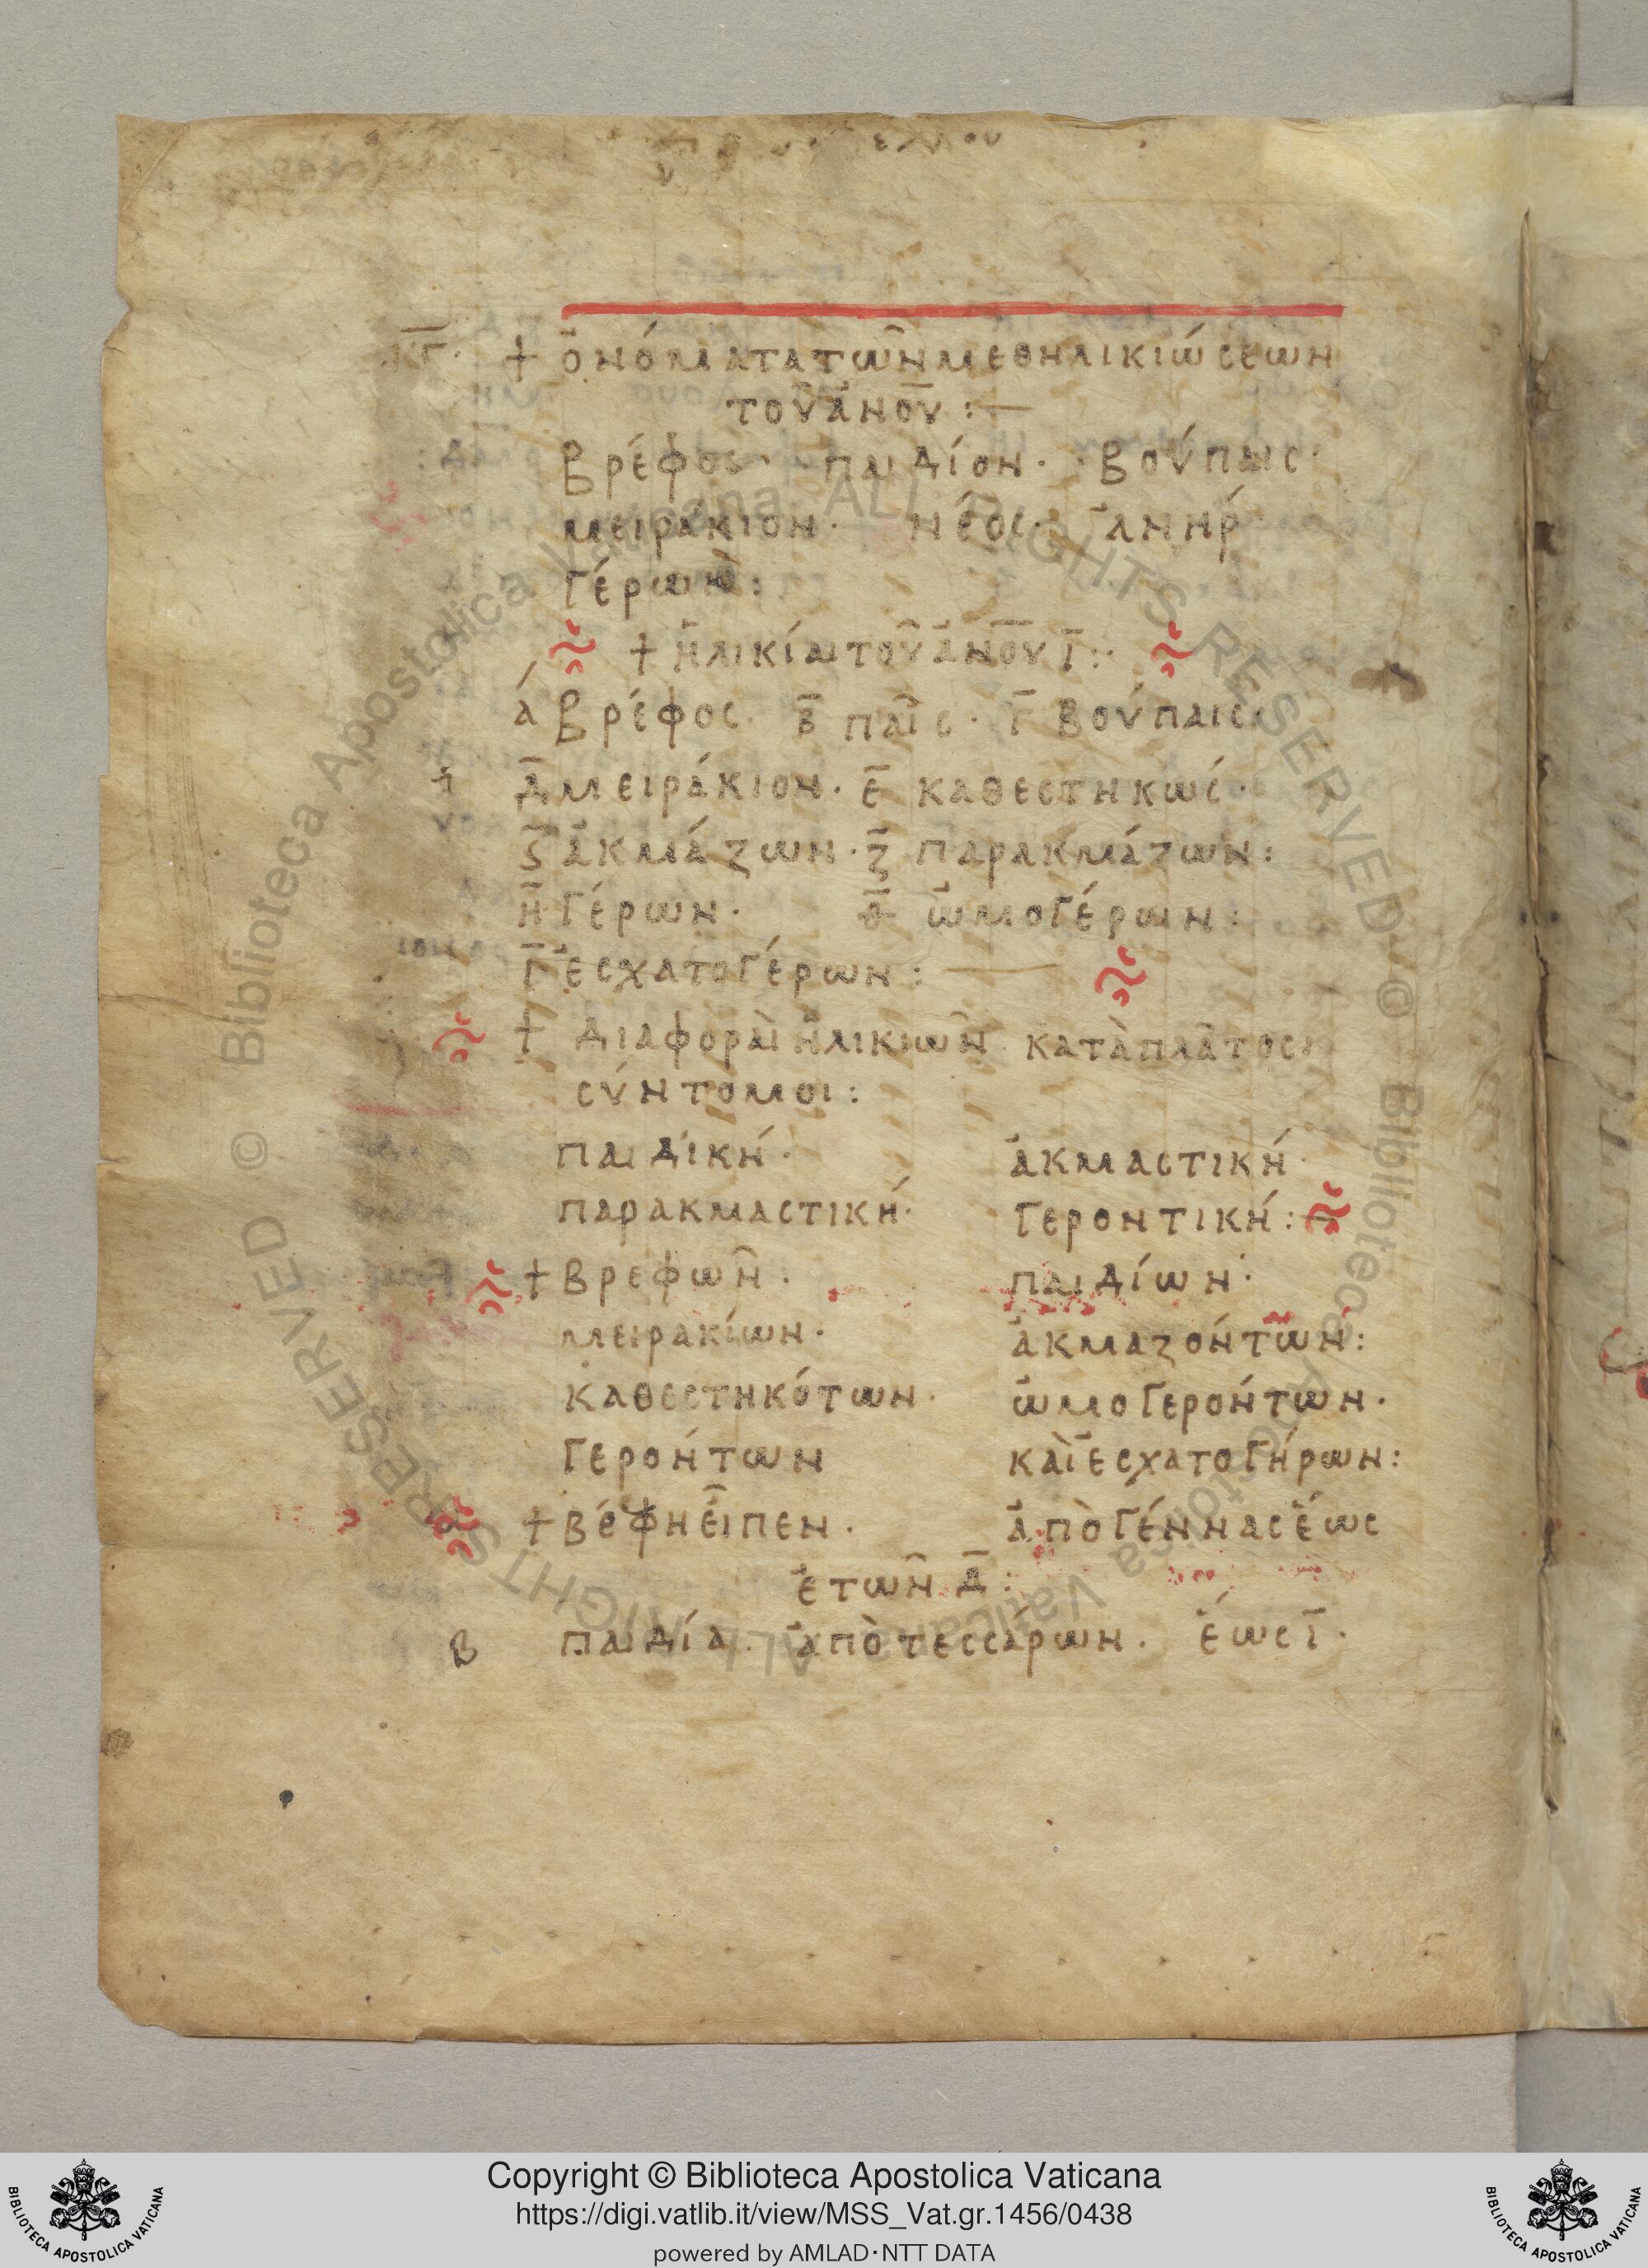 ΚΓ · + ὀνόματα τῶν μεθηλικιώσεων
τοῦ ἀν̅ο̅υ̅ :—
βρέφος · παιδίον · βούπαις ·
μειράκιον · νέος · ἀνήρ
γέρων :
+ ἡλικίαι τοῦ ἀν̅ο̅υ̅ ι̅ :
ά βρέφος · β̅ παῖς · γ̅ βούπαις
δ̅ μειράκιον · ε̅ καθεστηκώς ·
ϛ̅ ἀκμάζων · ζ̅ παρακμάζων :
η̅ γέρων · θ̅ ὠμογέρων :
ι̅ ἐσχατογέρων : —
+ διαφοραὶ ἡλικιῶν κατὰ πλᾶτος
σύντομοι :
παιδική · ἀκμαστική
παρακμαστική · γεροντική :
+ βρεφῶν · παιδίων ·
μειρακίων · ἀκμαζόντων :
καθεστηκότων · ὠμογερόντων ·
γερόντων καὶ ἐσχατογήρων :
+ βέφη εἶπεν · ἀπὸ γέννας ἕως
ἐτῶν δ̅ :
Β παιδία · ἀπὸ τεσσάρων · ἕως ι̅ ·
BIBLIOTECA APOSTOLICA VATICANA
Copyright © Biblioteca Apostolica Vaticana
https://digi.vatlib.it/view/MSS_Vat.gr.1456/0438
powered by AMLAD·NTT DATA
BIBLIOTECA APOSTOLICA VATICANA